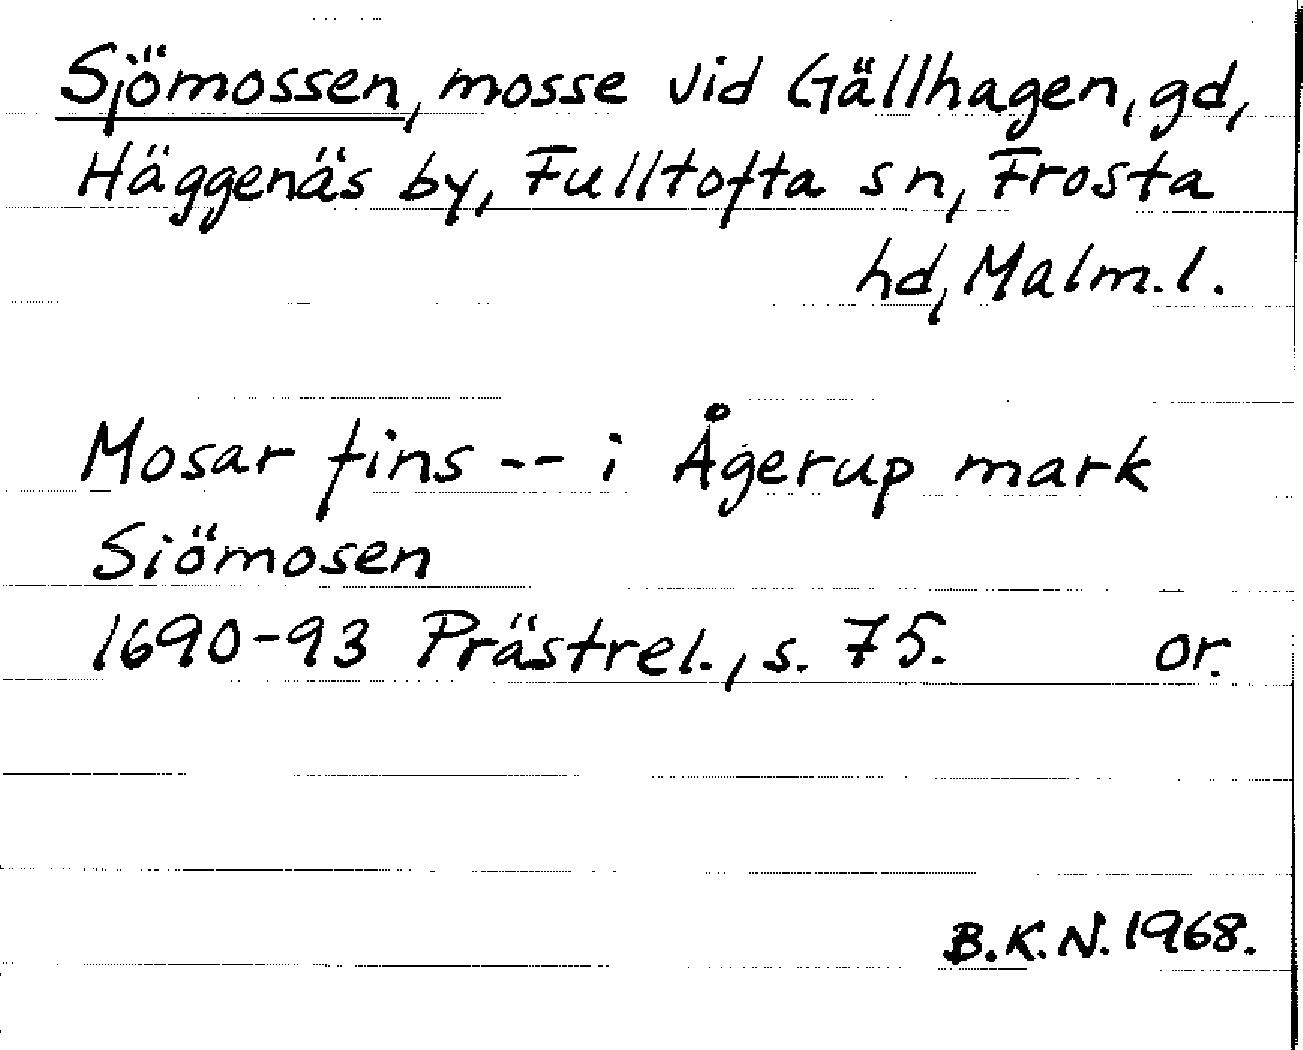 Sjömossen, mosse vid Gällhagen, gd,
Häggenäs by, Fulltofta sn, Frosta
hd, Malm.l.
Mosar fins -- i Ågerup mark
Siömosen
1690-93 Prästrel., s. 75. or.
B.K.N. 1968.